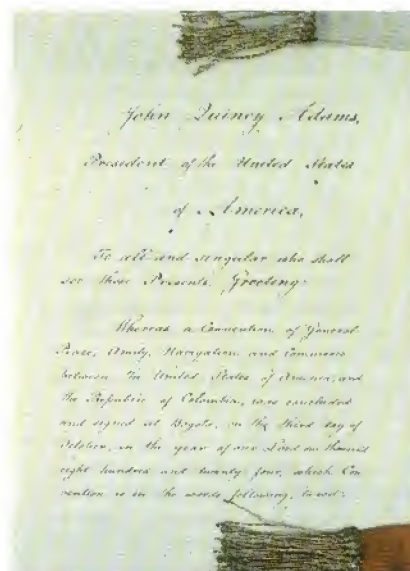 John Quincy Adams,
President of the United States
of America,
To all and singular who shall
see these Presents, Greeting:
Whereas a Convention of General
Peace, Amity, Navigation and Commerce
between the United States of America, and
the Republic of Colombia, was concluded
and signed at Bogota, on the third day of
October, in the year of our Lord one thousand
eight hundred and twenty four, which Con
vention is in the words following, to wit: